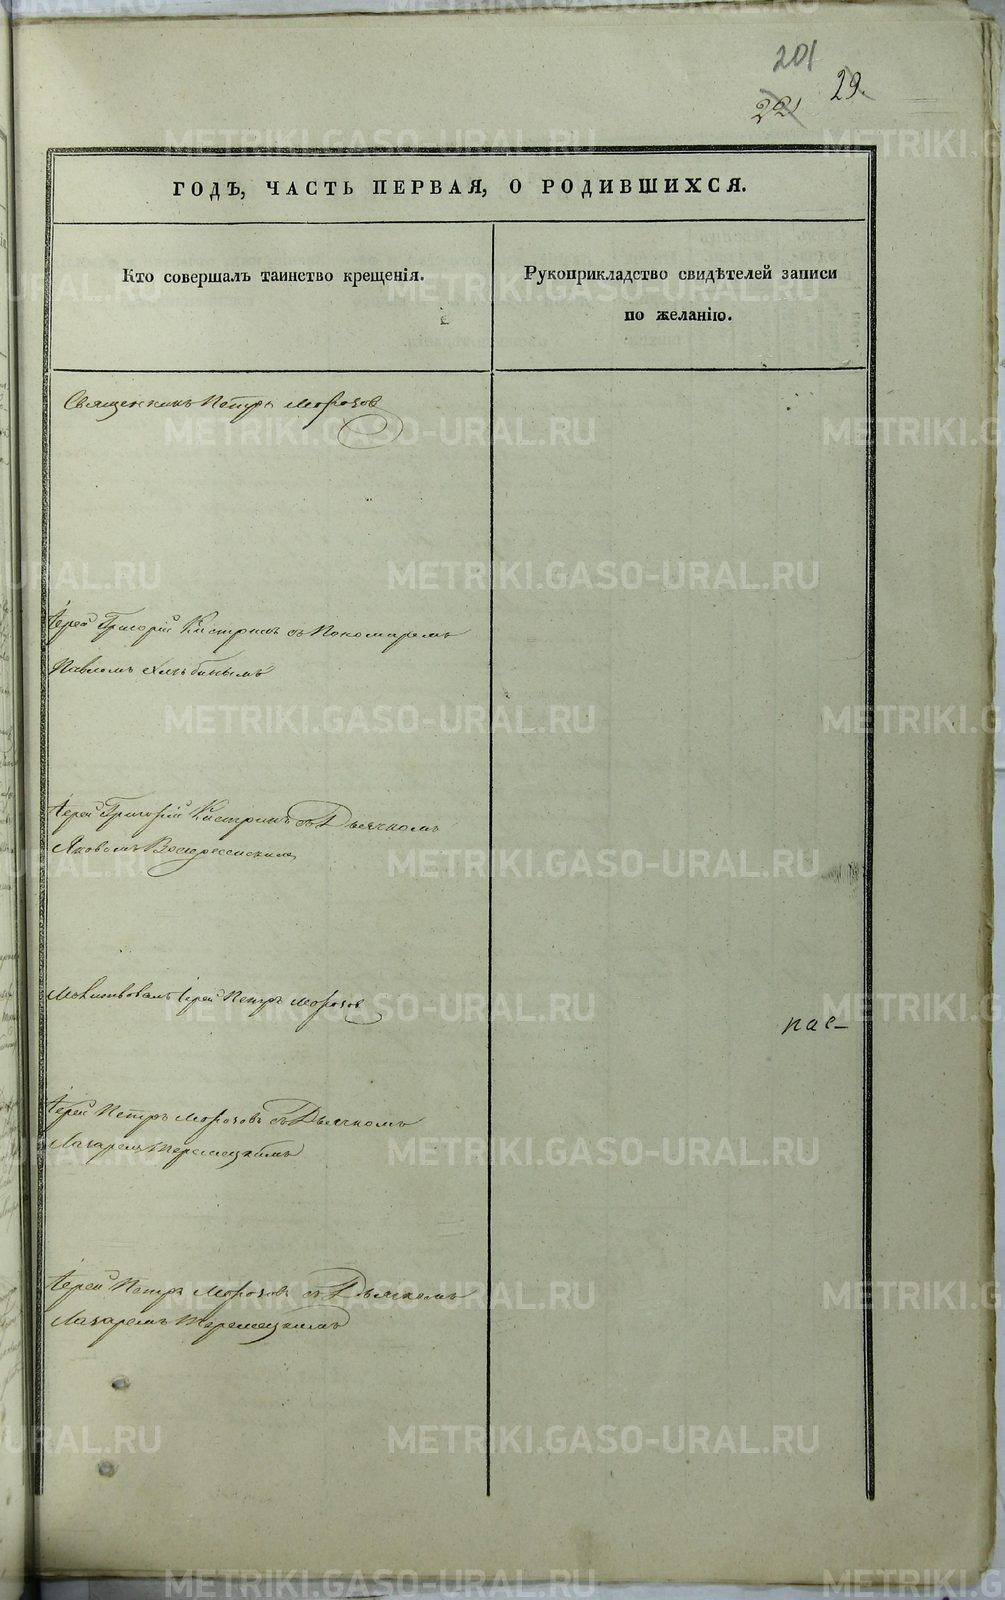 201
29.
221
ГОДЪ, ЧАСТЬ ПЕРВАЯ, О РОДИВШИХСЯ.
Кто совершалъ таинство крещенія.
Рукоприкладство свидѣтелей записи
по желанію.
Священникъ Петръ Морозов
Іерей Григорій Кастринъ съ Пономаремъ
Павломъ Хлѣбинымъ
Іерей Григорій Кастринъ съ Дьячкомъ
Яковомъ Воскресенскимъ
Молитвовалъ Іерей Петръ Морозов
рас-
Іерей Петръ Морозовъ съ Дьячкомъ
Лазаремъ
Іерей Петръ Морозовъ съ Дьячкомъ
Лазаремъ
METRIKI.GASO-URAL.RU